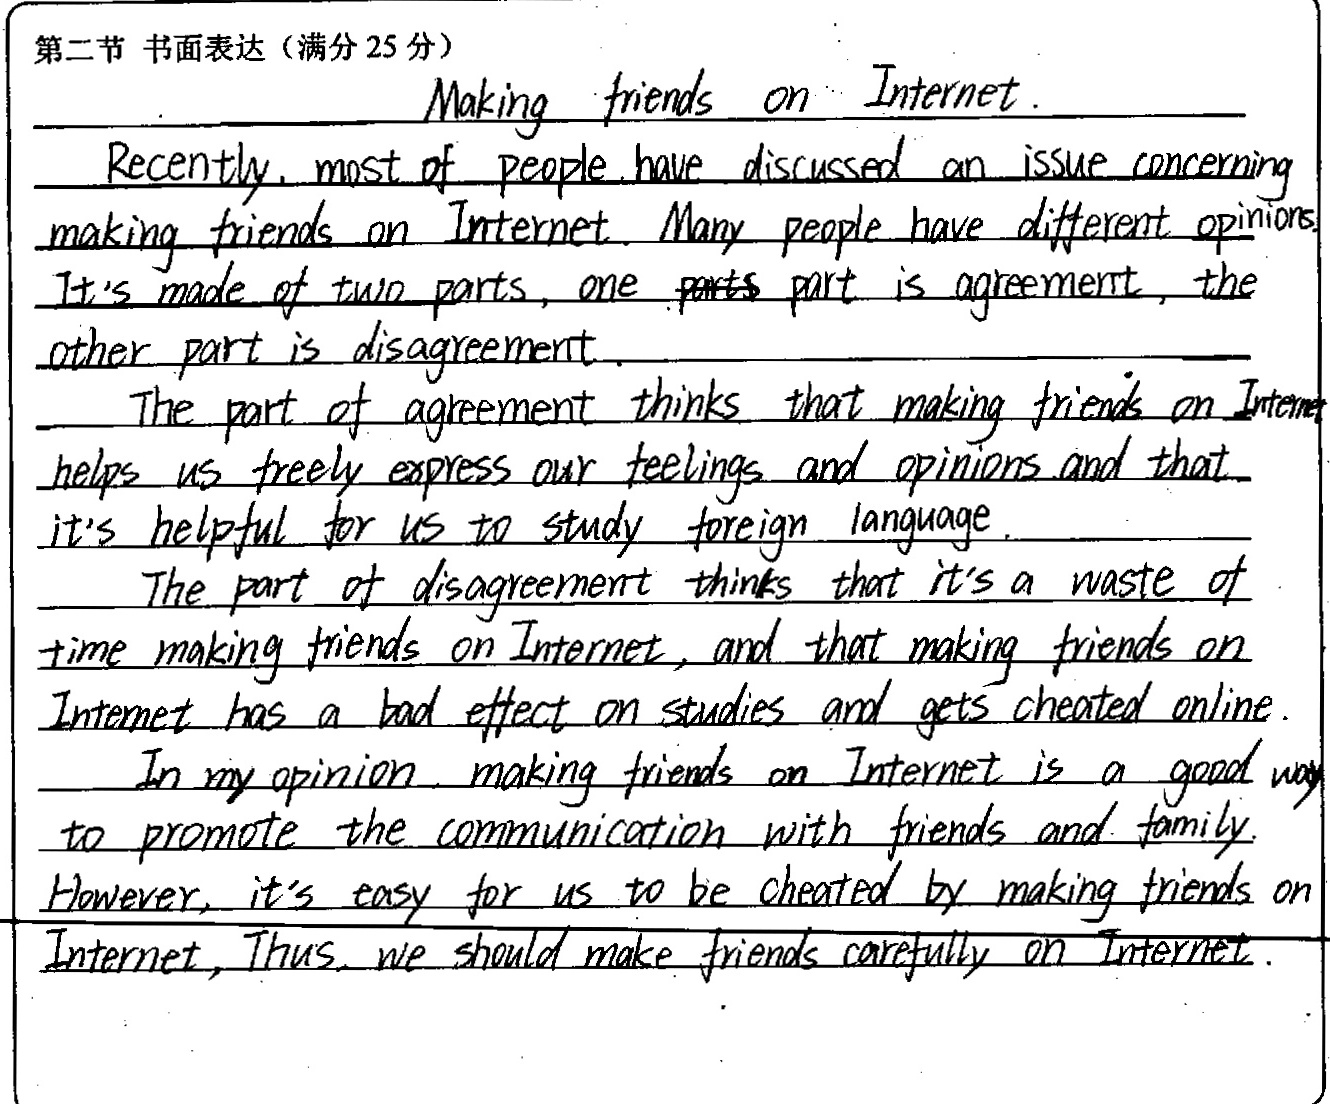 第二节 书面表达（满分25分）
Making friends on Internet.
Recently, most of people have discussed an issue concerning
making friends on Internet. Many people have different opinions.
It's made of two parts, one parts part is agreement, the
other part is disagreement.
The part of agreement thinks that making friends on Internet
helps us freely express our feelings and opinions and that
it's helpful for us to study foreign language.
The part of disagreement thinks that it's a waste of
time making friends on Internet, and that making friends on
Internet has a bad effect on studies and gets cheated online.
In my opinion, making friends on Internet is a good way
to promote the communication with friends and family.
However, it's easy for us to be cheated by making friends on
Internet, Thus, we should make friends carefully on Internet.